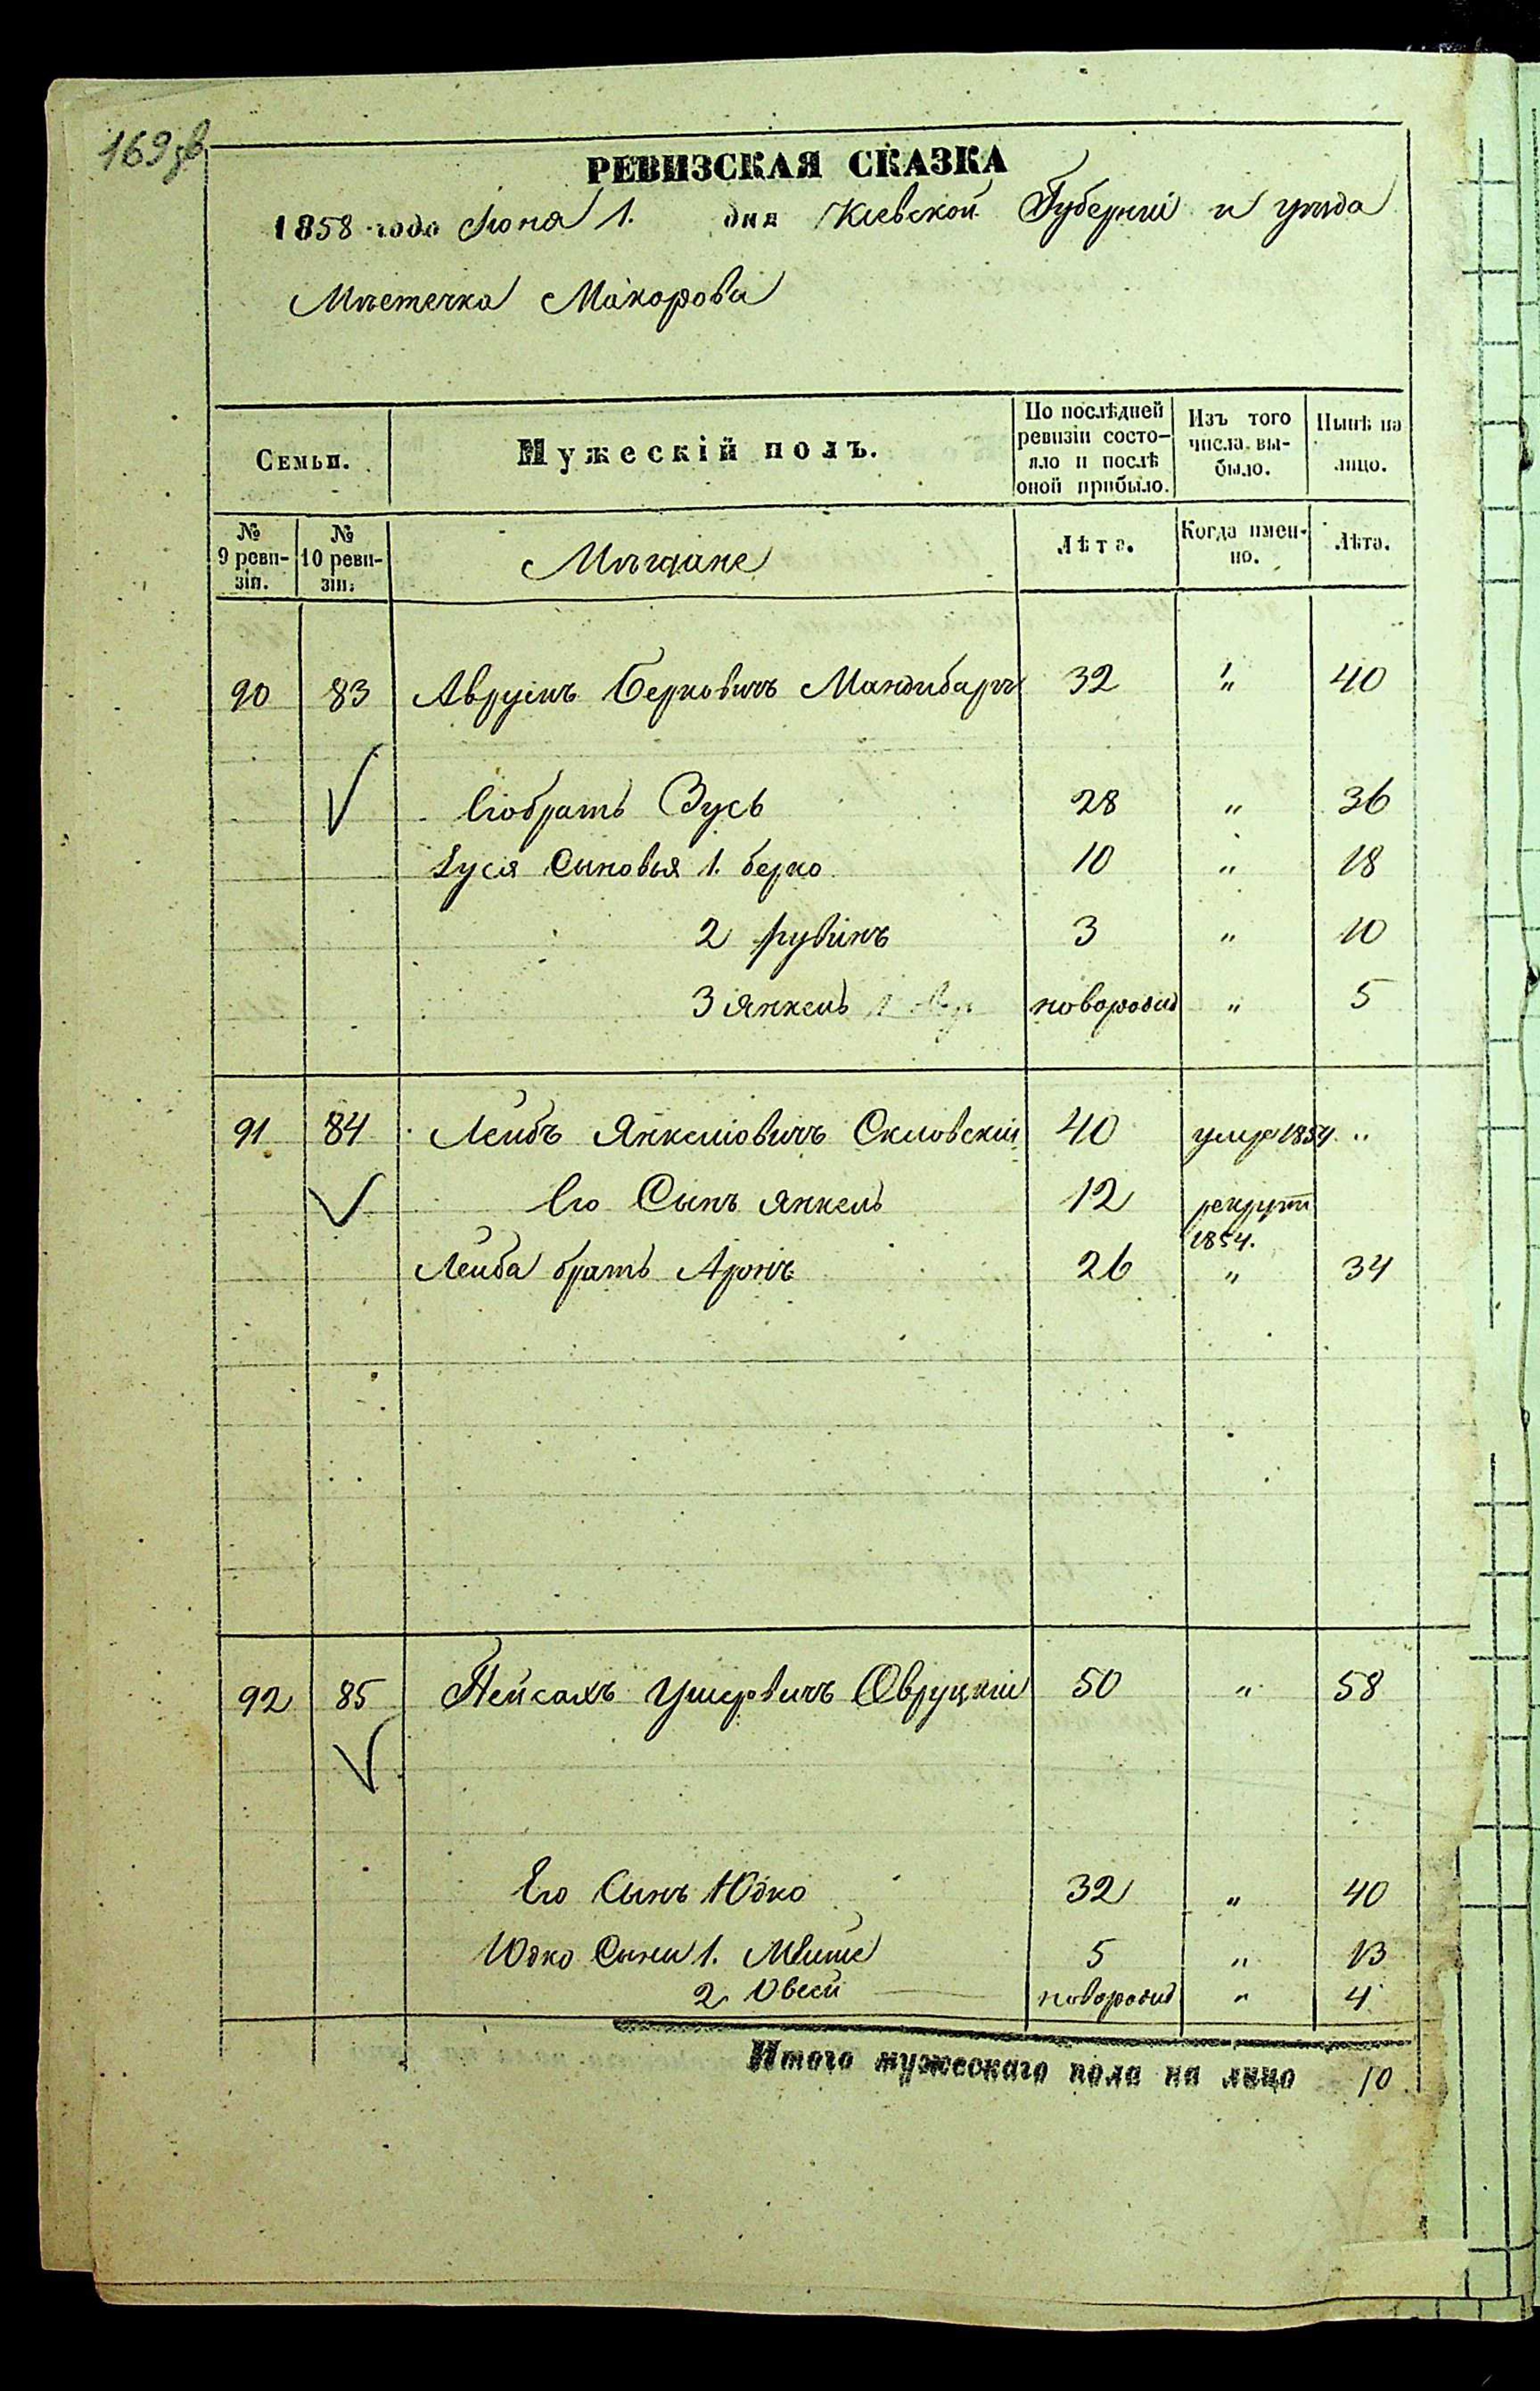 169зв
РЕВИЗСКАЯ СКАЗКА
1858 года Июня 1. дня Кіевской Губерніи и уѣзда
Мѣстечка Макарова
Семьи. Мужескій полъ. По послѣдней ревизіи состояло и послѣ оной прибыло. Изъ того числа выбыло. Нынѣ на лицо.
№ 9 ревизіи. № 10 ревизіи. Мѣщане Лѣта. Когда именно. Лѣта.
90 83 Аврумъ Берковичъ Мандибаръ 32 " 40
Его братъ Зусь 28 " 36
Зуся Сыновья 1. берко 10 " 18
2 рувинъ 3 " 10
3 Янкель новорожд " 5
91 84 Лейбъ Янкеліовичъ 40 умер 1854 "
Его Сынъ Янкель 12 рекрутъ 1854.
Лейба братъ Аронъ 26 " 34
92 85 Пейсахъ Ушеровичъ Овруцкій 50 " 58
Его Сынъ Юдко 32 " 40
Юдко Сыни 1. 5 " 13
2 Овсей новорожд " 4
Итого мужескаго пола на лицо 10